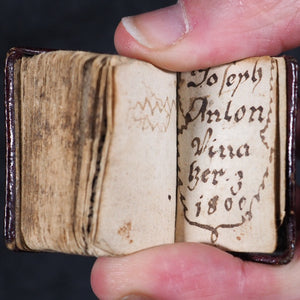 Joseph
Anton
Vina
zer. z
180